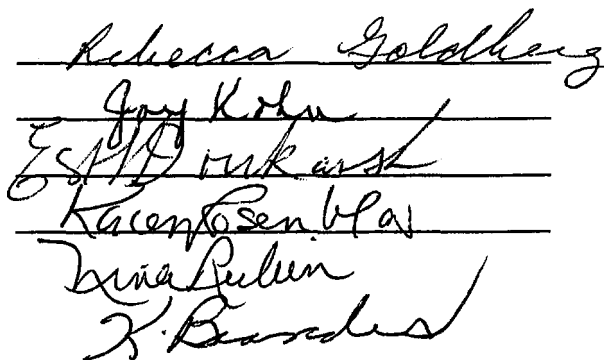 Rebecca Goldberg
Joy Kohn
Karen Rosenblas
Nina Rubin
K. Brandes